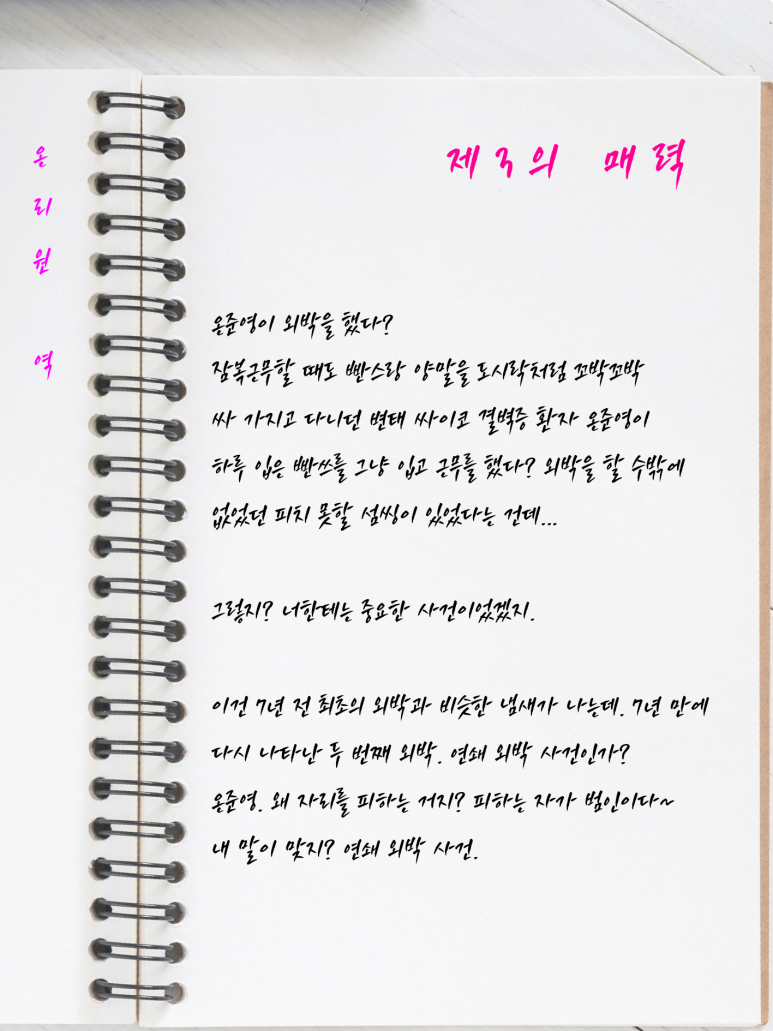 온
리
원
역
제 3의 매력
온준영이 외박을 했다?
잠복근무할 때도 빤스랑 양말을 도시락처럼 꼬박꼬박
싸 가지고 다니던 변태 싸이코 결벽증 환자 온준영이
하루 입은 빤쓰를 그냥 입고 근무를 했다? 외박을 할 수밖에
없었던 피치 못할 섬씽이 있었다는 건데...
그렇지? 너한테는 중요한 사건이었겠지.
이건 7년 전 최초의 외박과 비슷한 냄새가 나는데. 7년 만에
다시 나타난 두 번째 외박. 연쇄 외박 사건인가?
온준영. 왜 자리를 피하는 거지? 피하는 자가 범인이다~
내 말이 맞지? 연쇄 외박 사건.